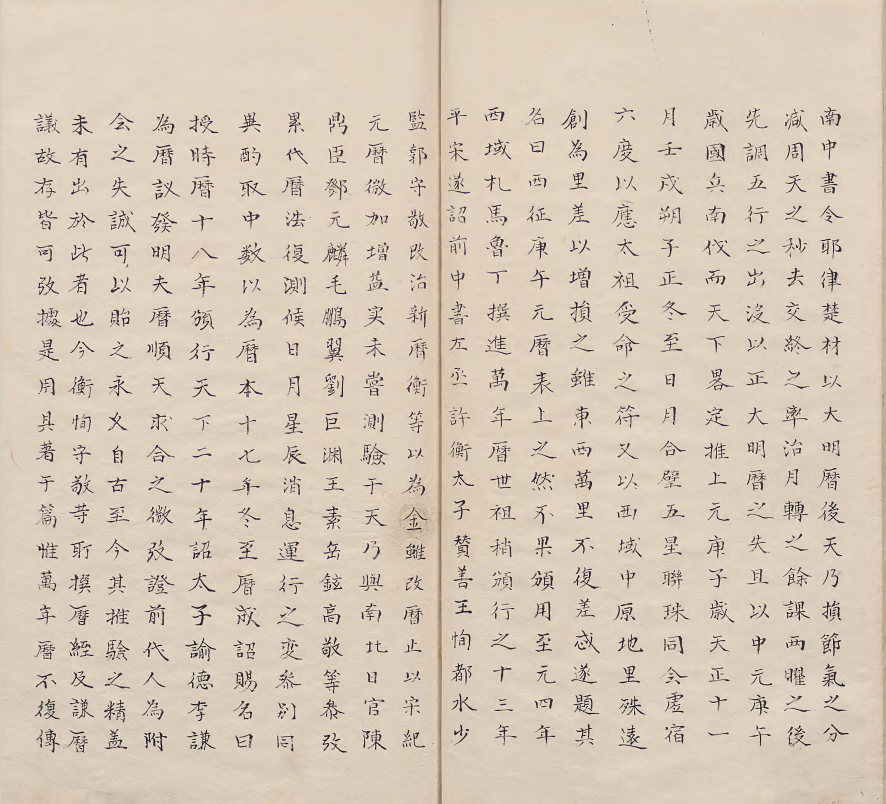 南中書令耶律楚材以大明曆後天乃損節氣之分
減周天之秒去交終之率治月轉之餘課两曜之後
先調五行之出沒以正大明曆之失且以中元庚午
歲國兵南伐而天下畧定推上元庚子歲天正十一
月壬戌朔子正冬至日月合璧五星聯珠同会虛宿
六度以應太祖受命之符又以西域中原地里殊遠
創為里差以增損之雖東西萬里不復差忒遂題其
名曰西征庚午元曆表上之然不果頒用至元四年
西域札馬魯丁撰進萬年曆世祖稍頒行之十三年
平宋遂詔前中書左丞許衡太子賛善王恂都水少
監郭守敬改治新曆衡等以為金雖改曆止以宋紀
元曆微加增益实未嘗測驗于天乃與南北日官陳
鼎臣鄧元麟毛鵬翼劉巨渊王素岳鉉高敬等叅攷
累代曆法復測候日月星辰消息運行之変叅别同
異酌取中数以為曆本十七年冬至曆成詔賜名曰
授時曆十八年頒行天下二十年詔太子諭德李謙
為曆議發明夫曆順天求合之微攷證前代人為附
会之失誠可以貽之永久自古至今其推驗之精盖
未有出於此者也今衡恂守敬等所撰曆經及謙曆
議故存皆可攷據是用具著于篇惟萬年曆不復傳